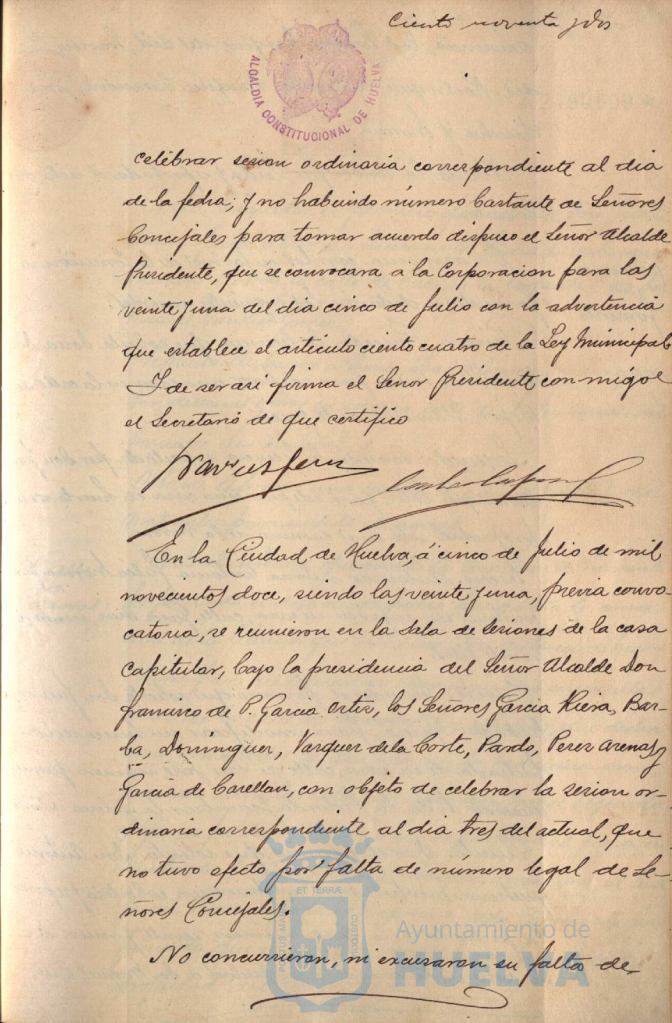 Ciento noventa y dos
ALCALDIA CONSTITUCIONAL DE HUELVA
celebrar sesion ordinaria correspondiente al dia
de la fecha; y no habiendo número bastante de Señores
Concejales para tomar acuerdo dispuso el Señor Alcalde
Presidente, que se convocara á la Corporacion para las
veinte y una del dia cinco de Julio con la advertencia
que establece el artículo ciento cuatro de la Ley Municipal.
Y de ser asi firma el Señor Presidente con migo
el Secretario de que certifico
En la Ciudad de Huelva, á cinco de Julio de mil
novecientos doce, siendo las veinte y una, previa convo-
catoria, se reunieron en la Sala de Sesiones de la casa
capitular, bajo la presidencia del Señor Alcalde Don
Francisco de P. Garcia Ortiz, los Señores Garcia Riera, Bar-
ba, Dominguez, Vazquez de la Corte, Pardo, Perez Arenas y
Garcia de Casellan, con objeto de celebrar la sesion or-
dinaria correspondiente al dia tres del actual, que
no tuvo efecto por falta de número legal de Se-
ñores Concejales.
No concurrieron, ni excusaron su falta de
ET TERRÆ
CUSTODIA
Ayuntamiento de
HUELVA